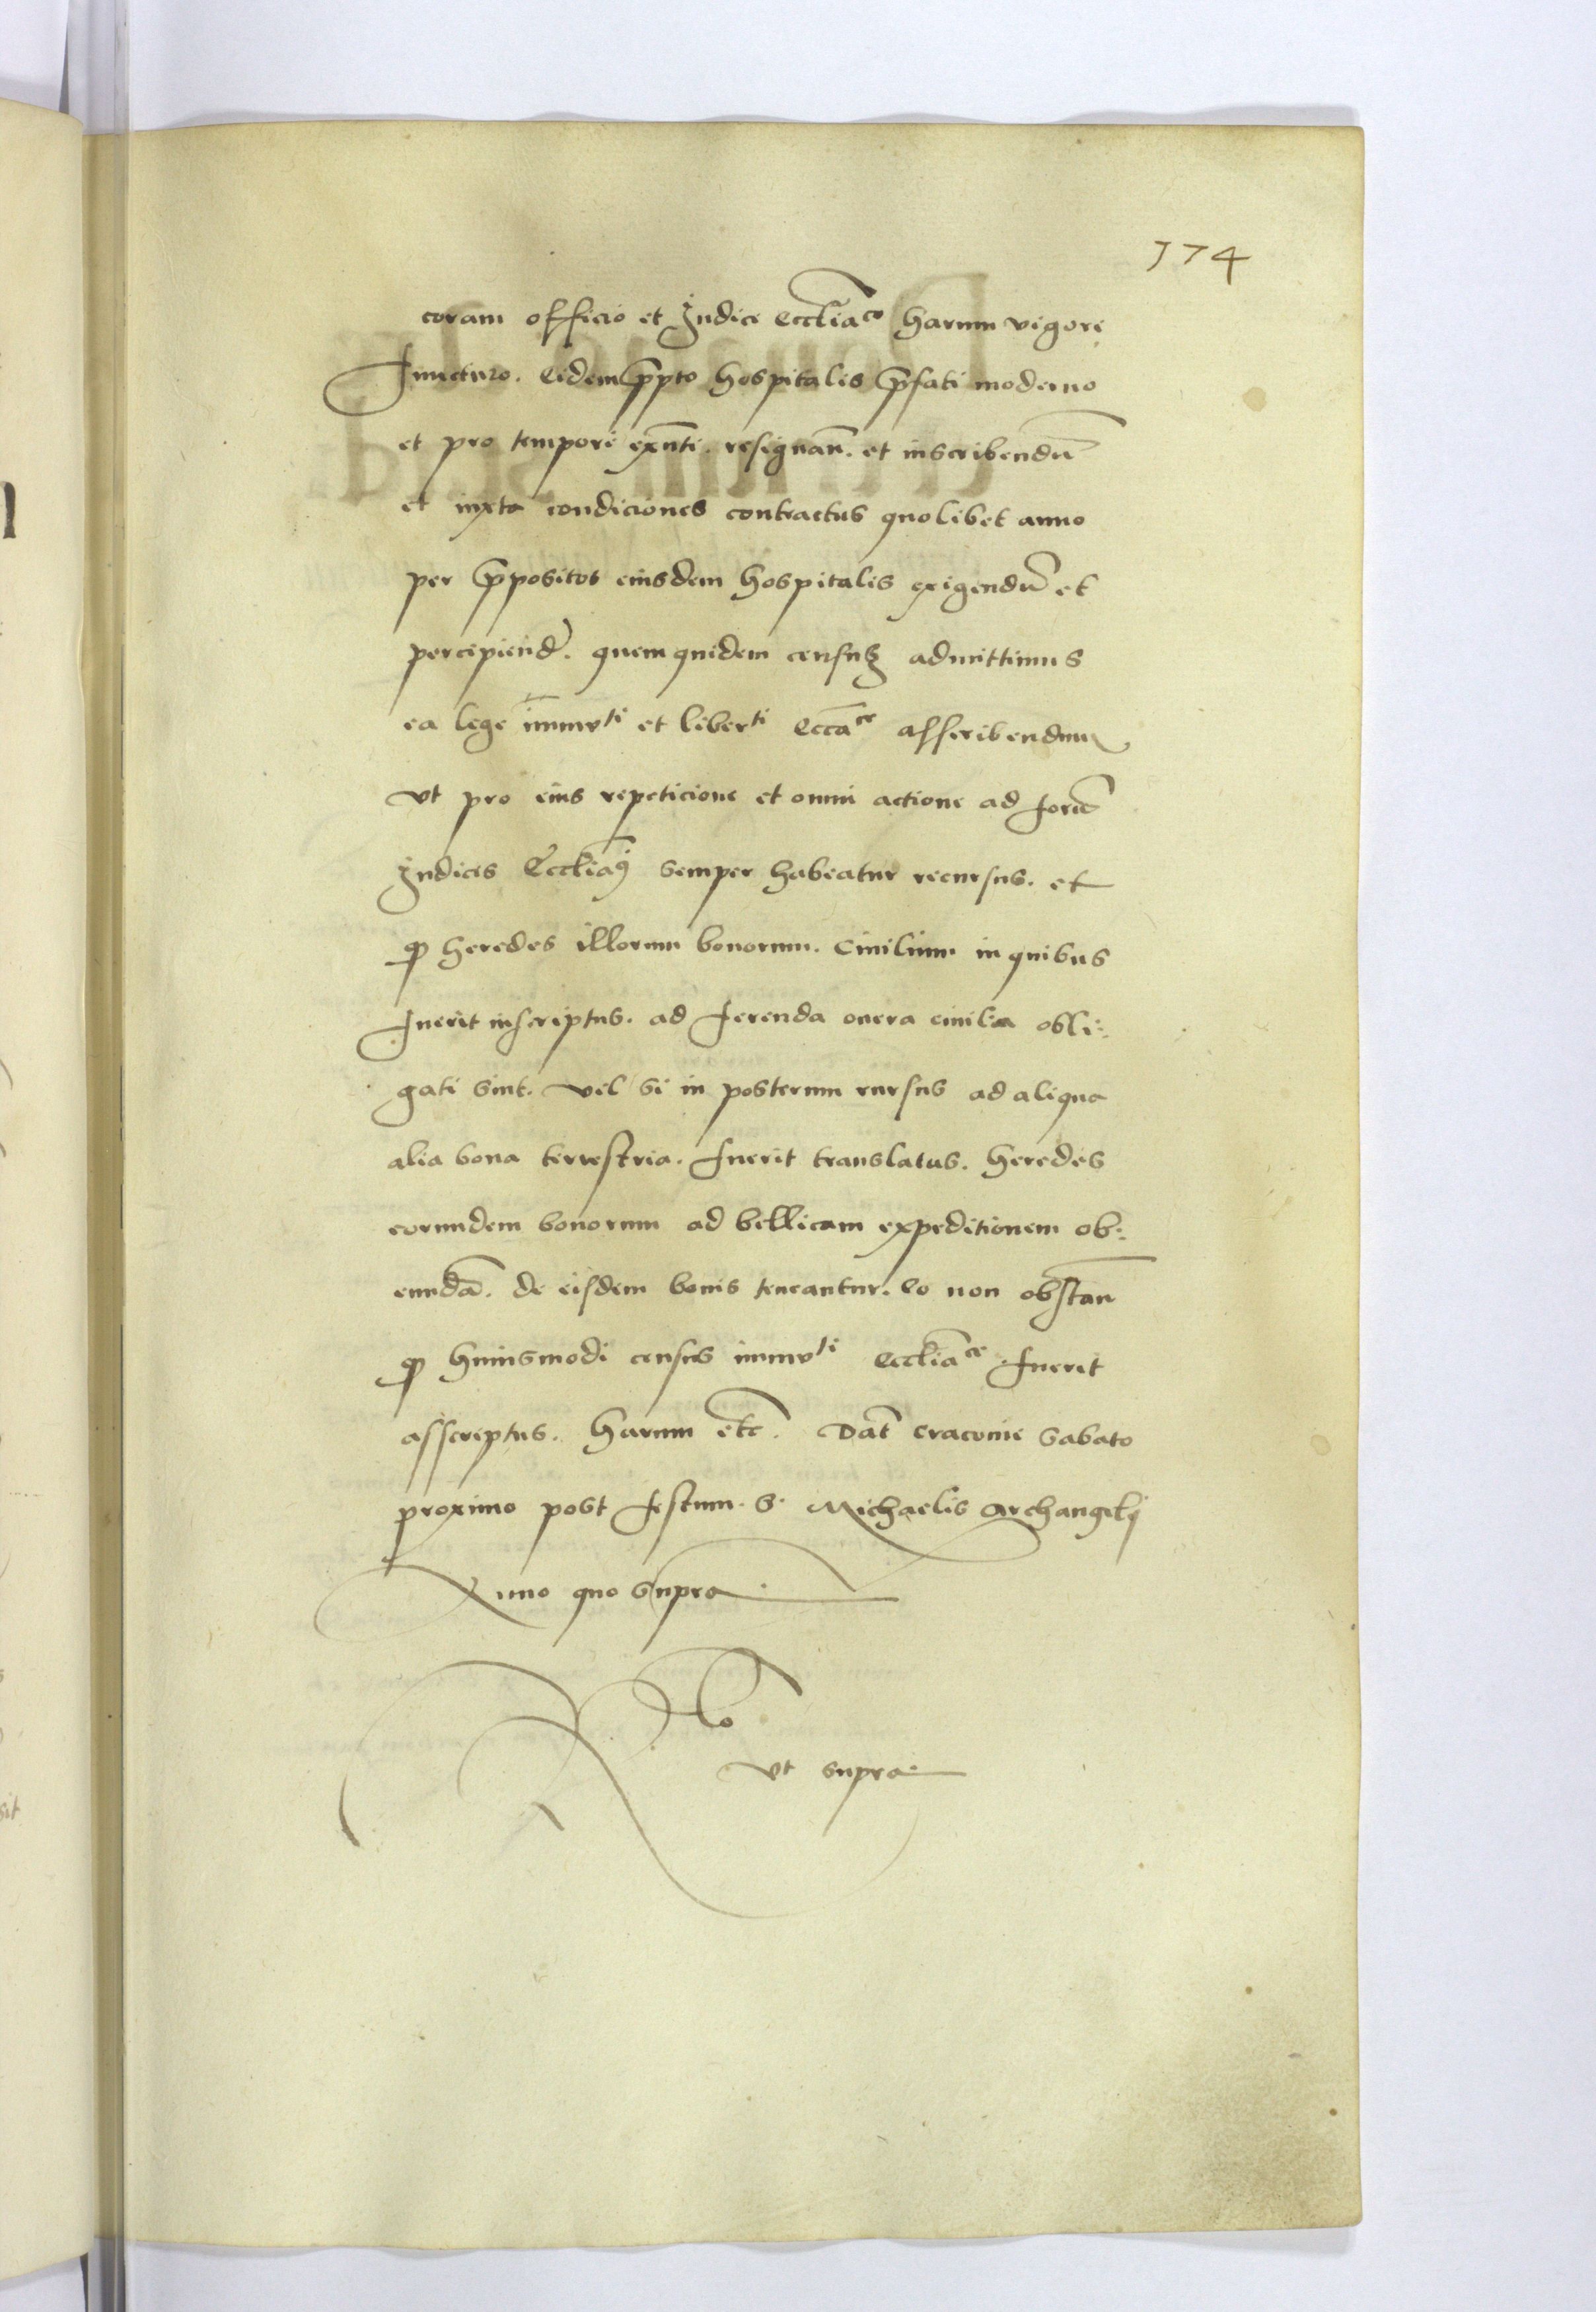 174
coram officio et Judice eccl̄iaco harum vigore
functuro. Eidem p̄p̄to hospitalis p̄fati moderno
et pro tempore exn̄ti. resignan̄. et inscribendū
et iuxta condiciones contractus quolibet anno
per p̄positos eiusdem hospitalis exigendū et
percipiend̄. quem quidem censuȝ admittimus
ea lege im̄nvti et liberti eccācę asscribendum
vt pro eius repeticione et omni actione ad forū
Judicis Eccl̄iaci semper habeatur recursus. et
qp heredes illorum bonorum. Ciuilium in quibus
fuerit inscriptus. ad ferenda onera ciuilia obli:
gati sint. vel si in posterum rursus ad aliqua
alia bona terrestria. fuerit translatus. heredes
eorundem bonorum ad bellicam expeditionem ob:
eundā. de eisdem bonis teneantur. Eo non obstan̄
qp huiusmodi census immvti Eccl̄iace fuerit
asscriptus. Harum etc̄. Dat̄ Cracouie sabato
proximo post festum. S. Michaelis Archangelj
Anno quo supra
R̄lo
vt supra